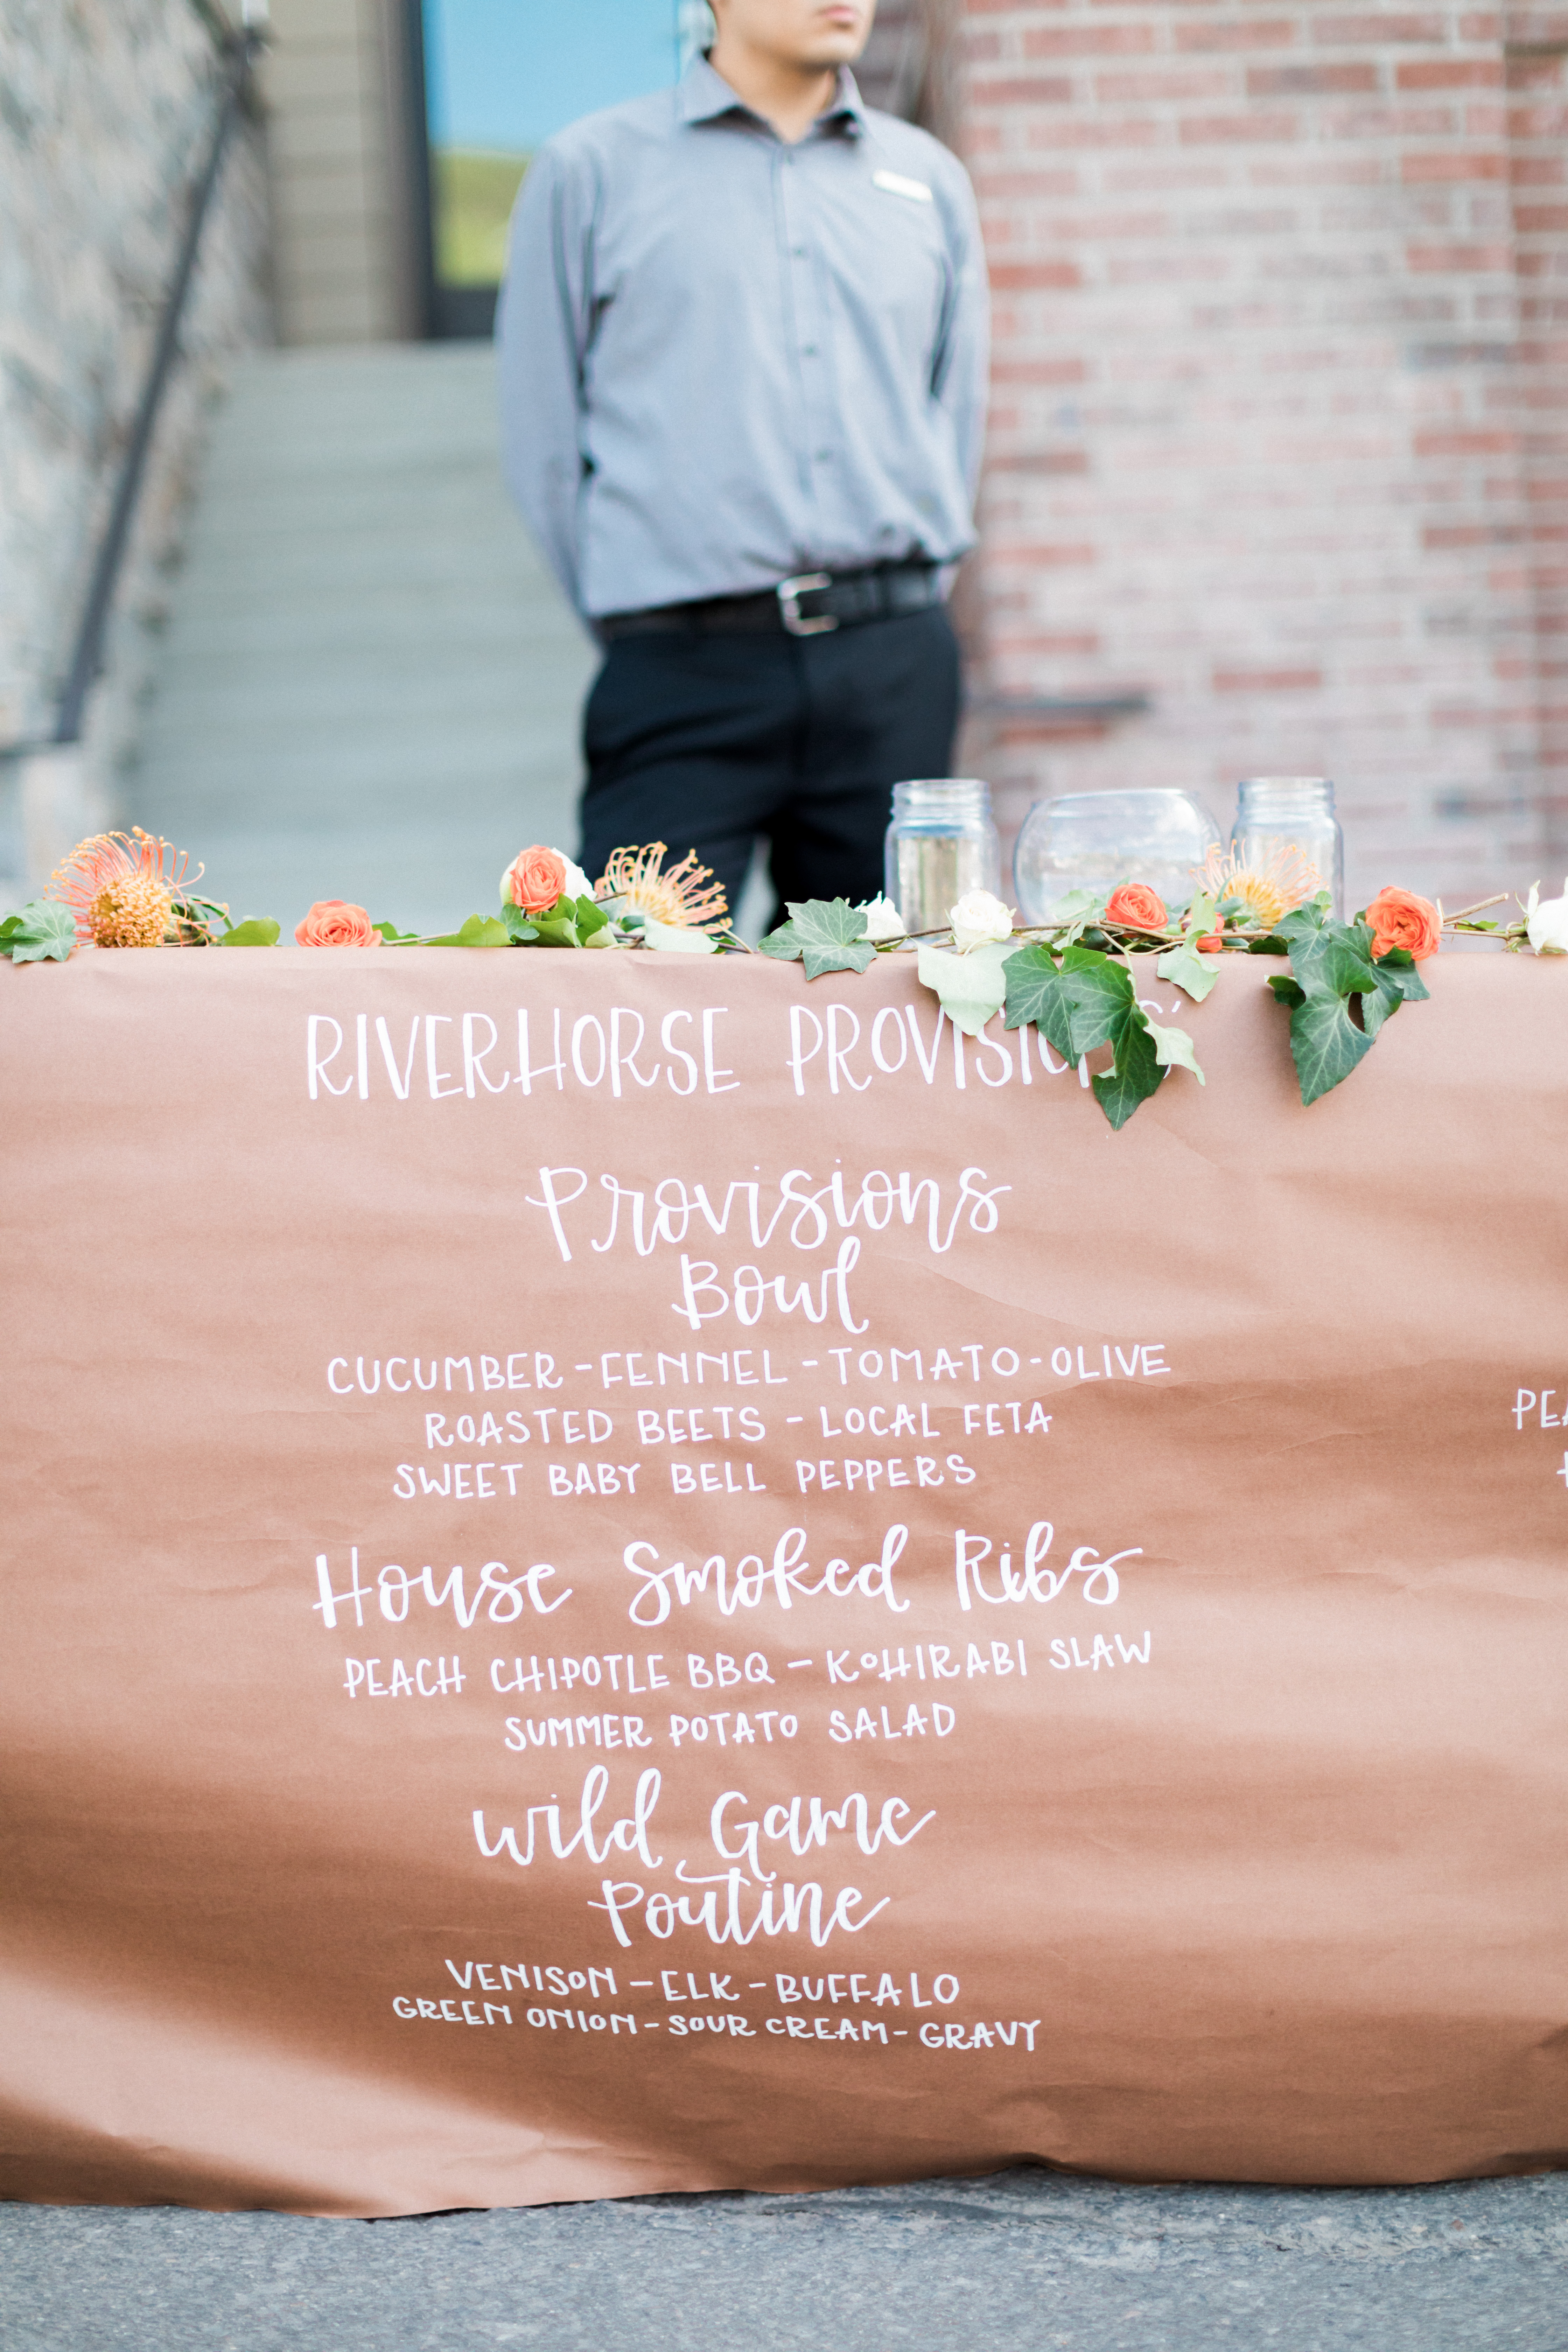 RIVERHORSE PROVISIONS'
Provisions
Bowl
CUCUMBER - FENNEL - TOMATO - OLIVE
ROASTED BEETS - LOCAL FETA
SWEET BABY BELL PEPPERS
House Smoked Ribs
PEACH CHIPOTLE BBQ - KOHIRABI SLAW
SUMMER POTATO SALAD
Wild Game
Poutine
VENISON - ELK - BUFFALO
GREEN ONION - SOUR CREAM - GRAVY